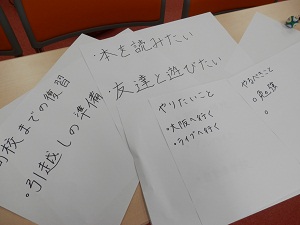 ・本を読みたい
・友達と遊びたい
校までの復習
・引越しの準備
やりたいこと
・大阪へ行く
・ライブへ行く
やるべきこと